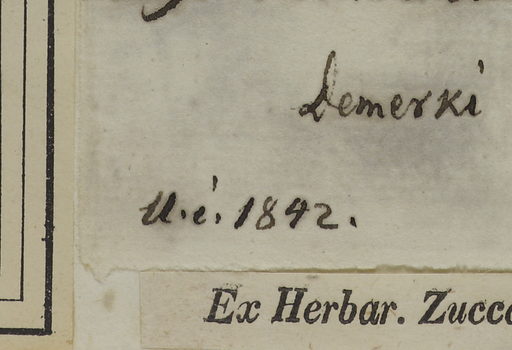 Demerki
U. i. 1842.
Ex Herbar. Zucc